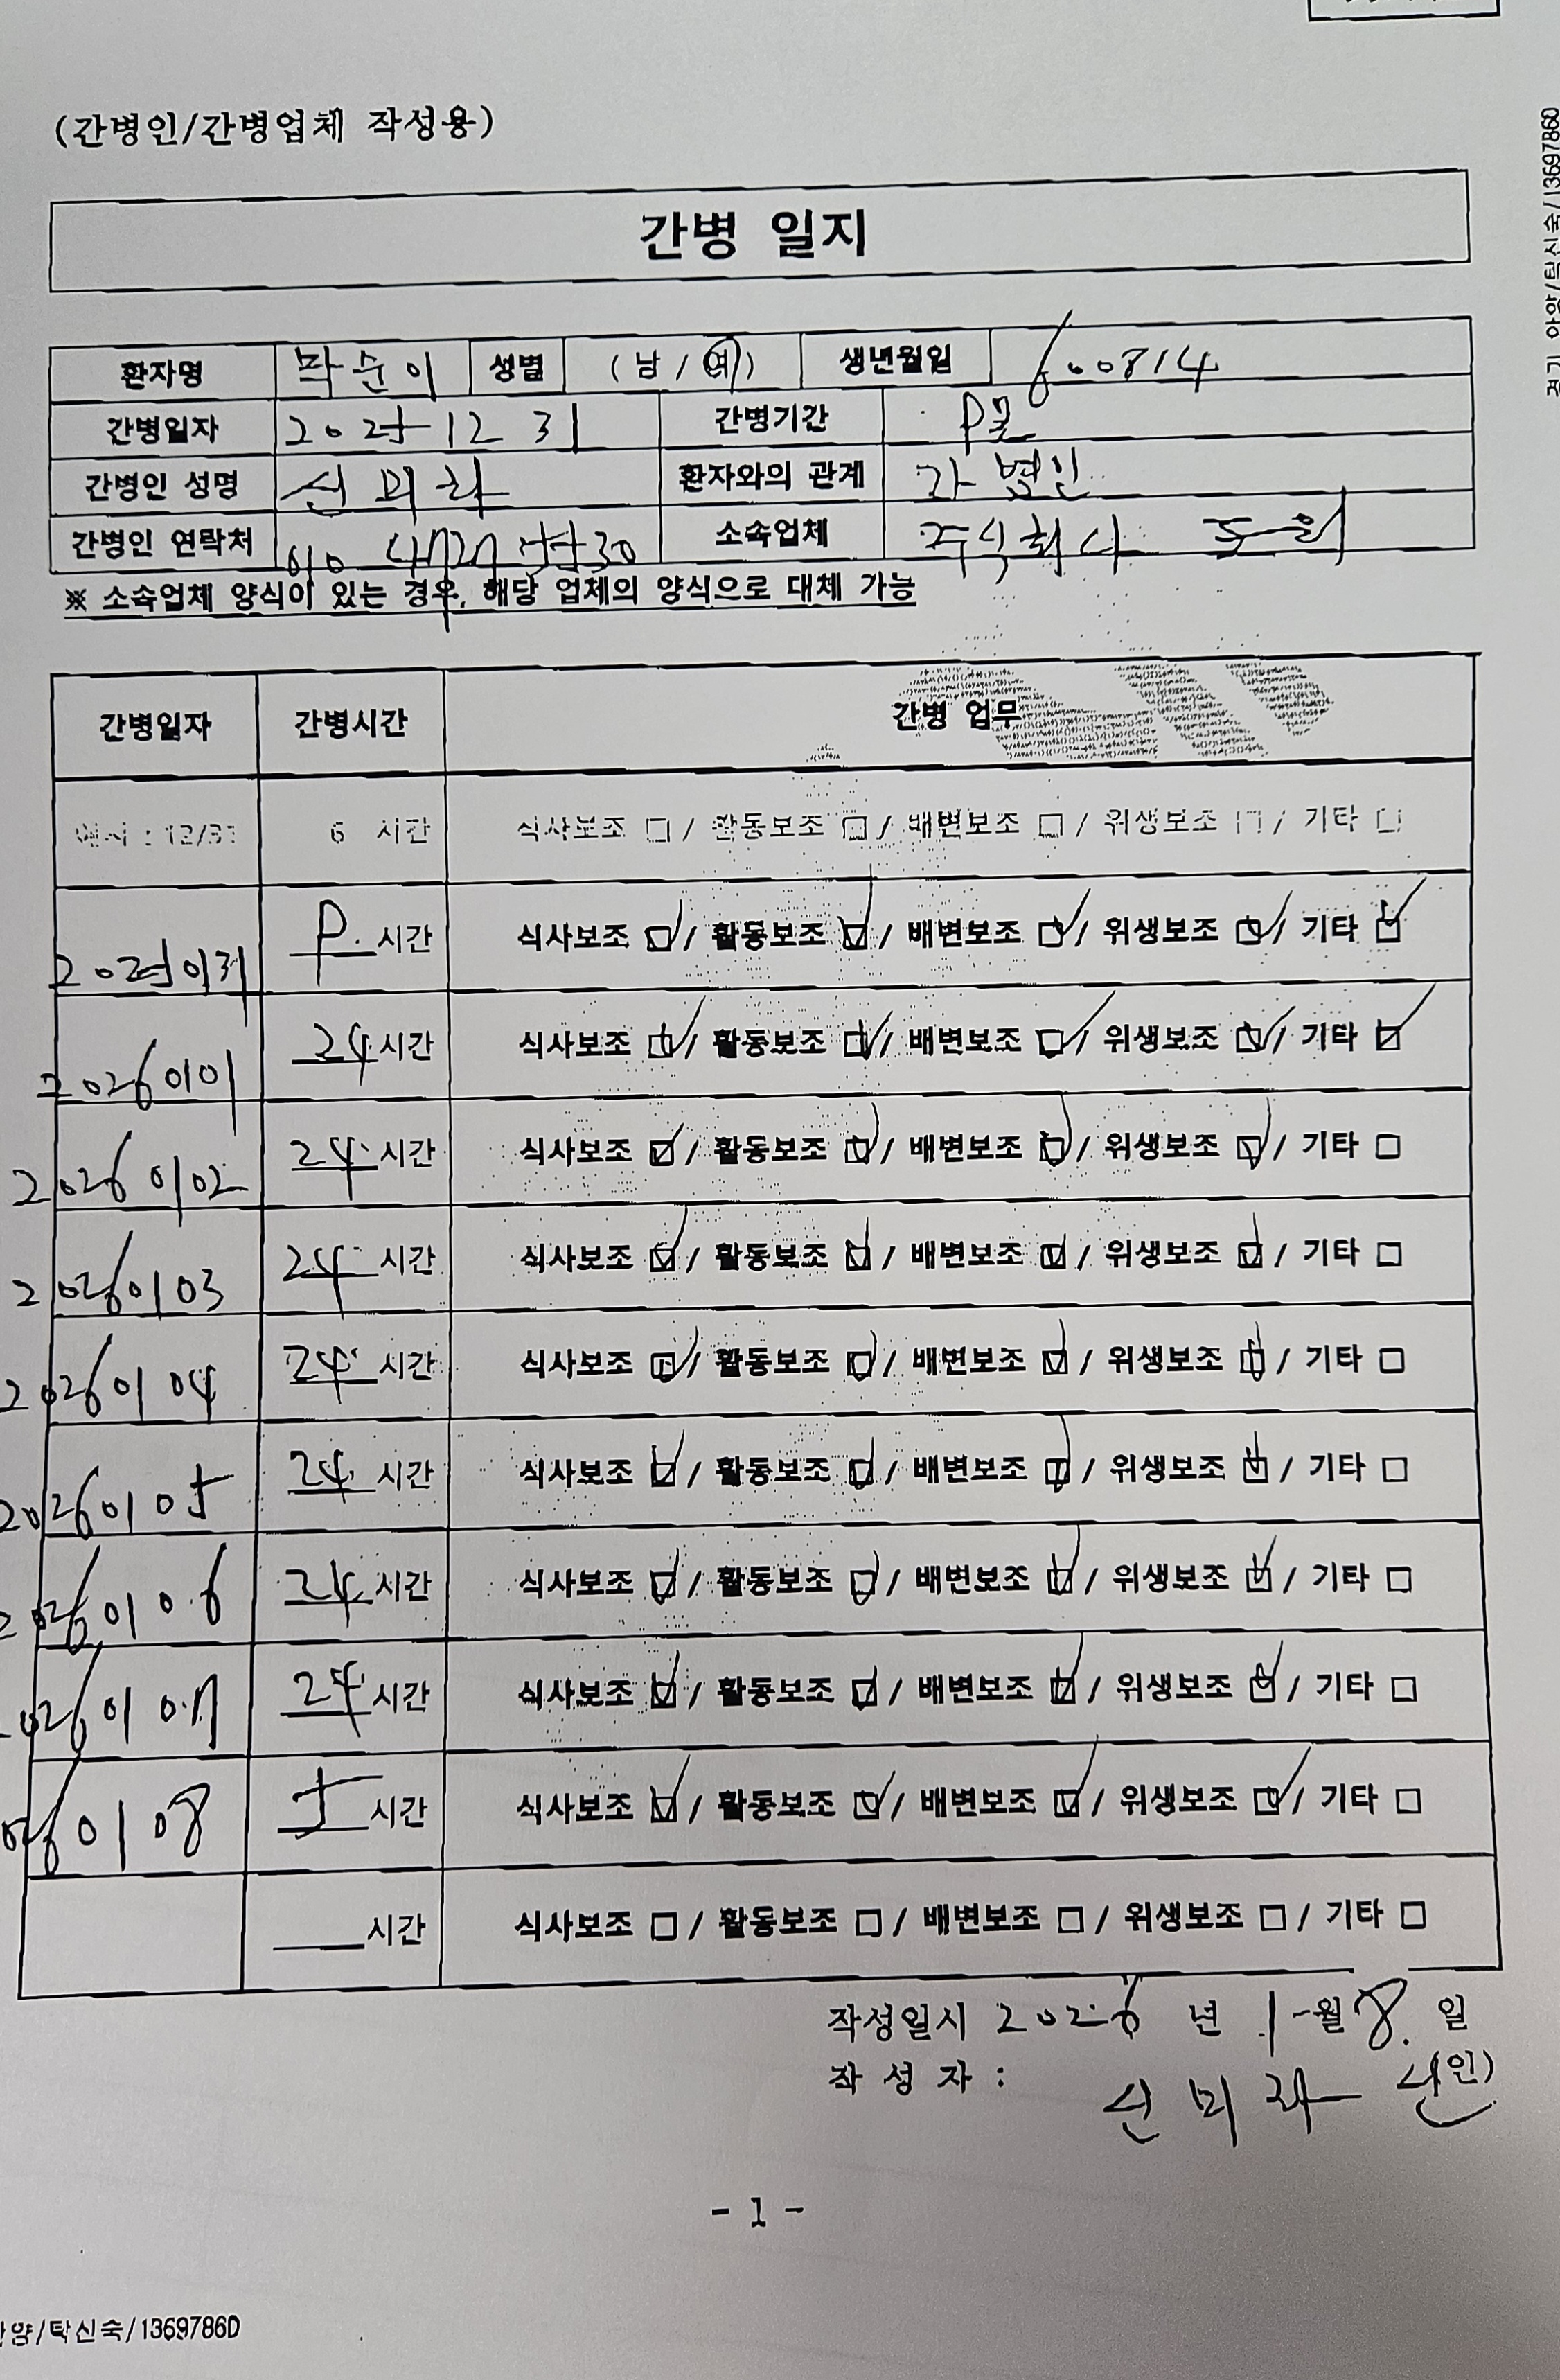 (간병인/간병업체 작성용)
간병 일지
환자명 박순이 성별 (남/여) 생년월일 600814
간병일자 2025 12 31 간병기간
간병인 성명 신미라 환자와의 관계 간병인
간병인 연락처 010 소속업체 주식회사
※ 소속업체 양식이 있는 경우, 해당 업체의 양식으로 대체 가능
간병일자 간병시간 간병 업무
예시 : 12/31 6 시간 식사보조 □ / 활동보조 □ / 배변보조 □ / 위생보조 □ / 기타 □
시간 식사보조 ☑ / 활동보조 ☑ / 배변보조 ☑ / 위생보조 ☑ / 기타 ☑
20260101 24 시간 식사보조 ☑ / 활동보조 ☑ / 배변보조 ☑ / 위생보조 ☑ / 기타 ☑
2026 0102 24 시간 식사보조 ☑ / 활동보조 ☑ / 배변보조 ☑ / 위생보조 ☑ / 기타 □
2026 01 03 24 시간 식사보조 ☑ / 활동보조 ☑ / 배변보조 ☑ / 위생보조 ☑ / 기타 □
2026 01 04 24 시간 식사보조 ☑ / 활동보조 ☑ / 배변보조 ☑ / 위생보조 ☑ / 기타 □
2026 01 05 24 시간 식사보조 ☑ / 활동보조 ☑ / 배변보조 ☑ / 위생보조 ☑ / 기타 □
2026 01 06 24 시간 식사보조 ☑ / 활동보조 ☑ / 배변보조 ☑ / 위생보조 ☑ / 기타 □
2026 01 07 24 시간 식사보조 ☑ / 활동보조 ☑ / 배변보조 ☑ / 위생보조 ☑ / 기타 □
026 01 08 5 시간 식사보조 ☑ / 활동보조 ☑ / 배변보조 ☑ / 위생보조 ☑ / 기타 □
시간 식사보조 □ / 활동보조 □ / 배변보조 □ / 위생보조 □ / 기타 □
작성일시 2026 년 1 월 8 일
작 성 자 : 신 미 라 (인)
- 1 -
안양/탁신숙/1369786D
안양/탁신숙/1369786D